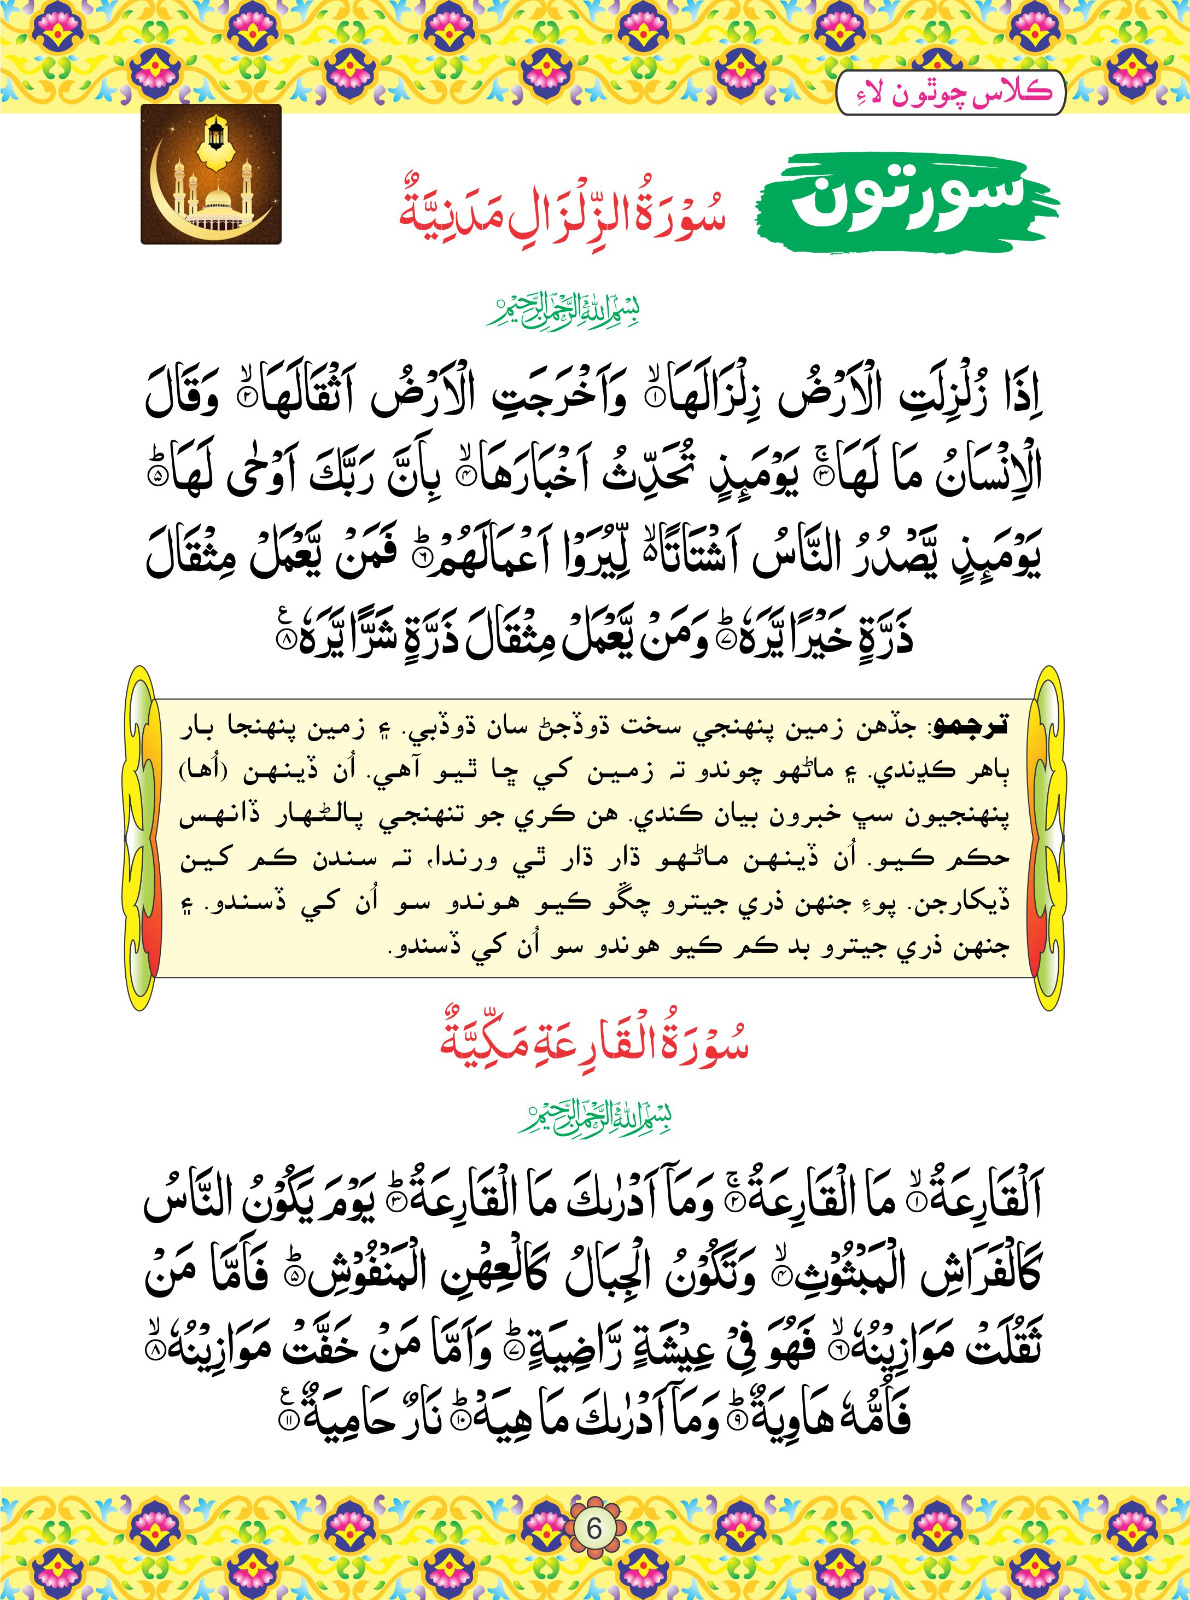 ڪلاس چوٿون لاءِ
سورتون
سُوْرَةُ الزِّلْزَالِ مَدَنِيَّةٌ
بِسْمِ اللّٰهِ الرَّحْمٰنِ الرَّحِيْمِ
اِذَا زُلْزِلَتِ الْاَرْضُ زِلْزَالَهَا ۙ﴿۱﴾ وَاَخْرَجَتِ الْاَرْضُ اَثْقَالَهَا ۙ﴿۲﴾ وَقَالَ
الْاِنْسَانُ مَا لَهَا ۚ﴿۳﴾ يَوْمَىِٕذٍ تُحَدِّثُ اَخْبَارَهَا ۙ﴿۴﴾ بِاَنَّ رَبَّكَ اَوْحٰى لَهَا ؕ﴿۵﴾
يَوْمَىِٕذٍ يَّصْدُرُ النَّاسُ اَشْتَاتًا ۙ۬ لِّيُرَوْا اَعْمَالَهُمْ ؕ﴿۶﴾ فَمَنْ يَّعْمَلْ مِثْقَالَ
ذَرَّةٍ خَيْرًا يَّرَهٗ ؕ﴿۷﴾ وَمَنْ يَّعْمَلْ مِثْقَالَ ذَرَّةٍ شَرًّا يَّرَهٗ ﴿۸﴾ۧ
ترجمو: جڏهن زمين پنهنجي سخت ڌوڏجڻ سان ڌوڏبي. ۽ زمين پنهنجا بار
ٻاهر ڪڍندي. ۽ ماڻهو چوندو تہ زمين کي ڇا ٿيو آهي. اُن ڏينهن (اُها)
پنهنجيون سڀ خبرون بيان ڪندي. هن ڪري جو تنهنجي پالڻهار ڏانهس
حڪم ڪيو. اُن ڏينهن ماڻهو ڌار ڌار ٿي ورندا، تہ سندن ڪم کين
ڏيکارجن. پوءِ جنهن ذري جيترو چڱو ڪيو هوندو سو اُن کي ڏسندو. ۽
جنهن ذري جيترو بد ڪم ڪيو هوندو سو اُن کي ڏسندو.
سُوْرَةُ الْقَارِعَةِ مَكِّيَّةٌ
بِسْمِ اللّٰهِ الرَّحْمٰنِ الرَّحِيْمِ
اَلْقَارِعَةُ ۙ﴿۱﴾ مَا الْقَارِعَةُ ۚ﴿۲﴾ وَمَاۤ اَدْرٰىكَ مَا الْقَارِعَةُ ؕ﴿۳﴾ يَوْمَ يَكُوْنُ النَّاسُ
كَالْفَرَاشِ الْمَبْثُوْثِ ۙ﴿۴﴾ وَتَكُوْنُ الْجِبَالُ كَالْعِهْنِ الْمَنْفُوْشِ ؕ﴿۵﴾ فَاَمَّا مَنْ
ثَقُلَتْ مَوَازِيْنُهٗ ۙ﴿۶﴾ فَهُوَ فِيْ عِيْشَةٍ رَّاضِيَةٍ ؕ﴿۷﴾ وَاَمَّا مَنْ خَفَّتْ مَوَازِيْنُهٗ ۙ﴿۸﴾
فَاُمُّهٗ هَاوِيَةٌ ؕ﴿۹﴾ وَمَاۤ اَدْرٰىكَ مَا هِيَهْ ؕ﴿۱۰﴾ نَارٌ حَامِيَةٌ ﴿۱۱﴾ۧ
6